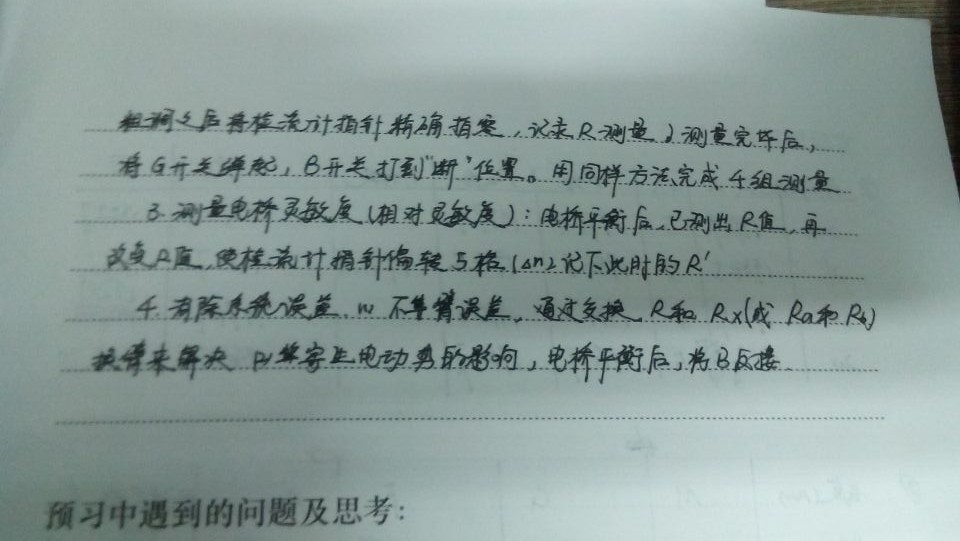 粗调之后将检流计指针精确指零，记录R测量 测量完毕后，
将G开关弹起，B开关打到"断"位置。用同样方法完成4组测量
3.测量电桥灵敏度(相对灵敏度)：电桥平衡后，已测出R值，再
改变R值，使检流计指针偏转5格(Δn)记下此时的R′
4.消除系统误差. (1)不等臂误差，通过交换 R和 Rx(或 Ra和Rb)
来解决 (2) 电动势的影响，电桥平衡后，将B反接
预习中遇到的问题及思考：